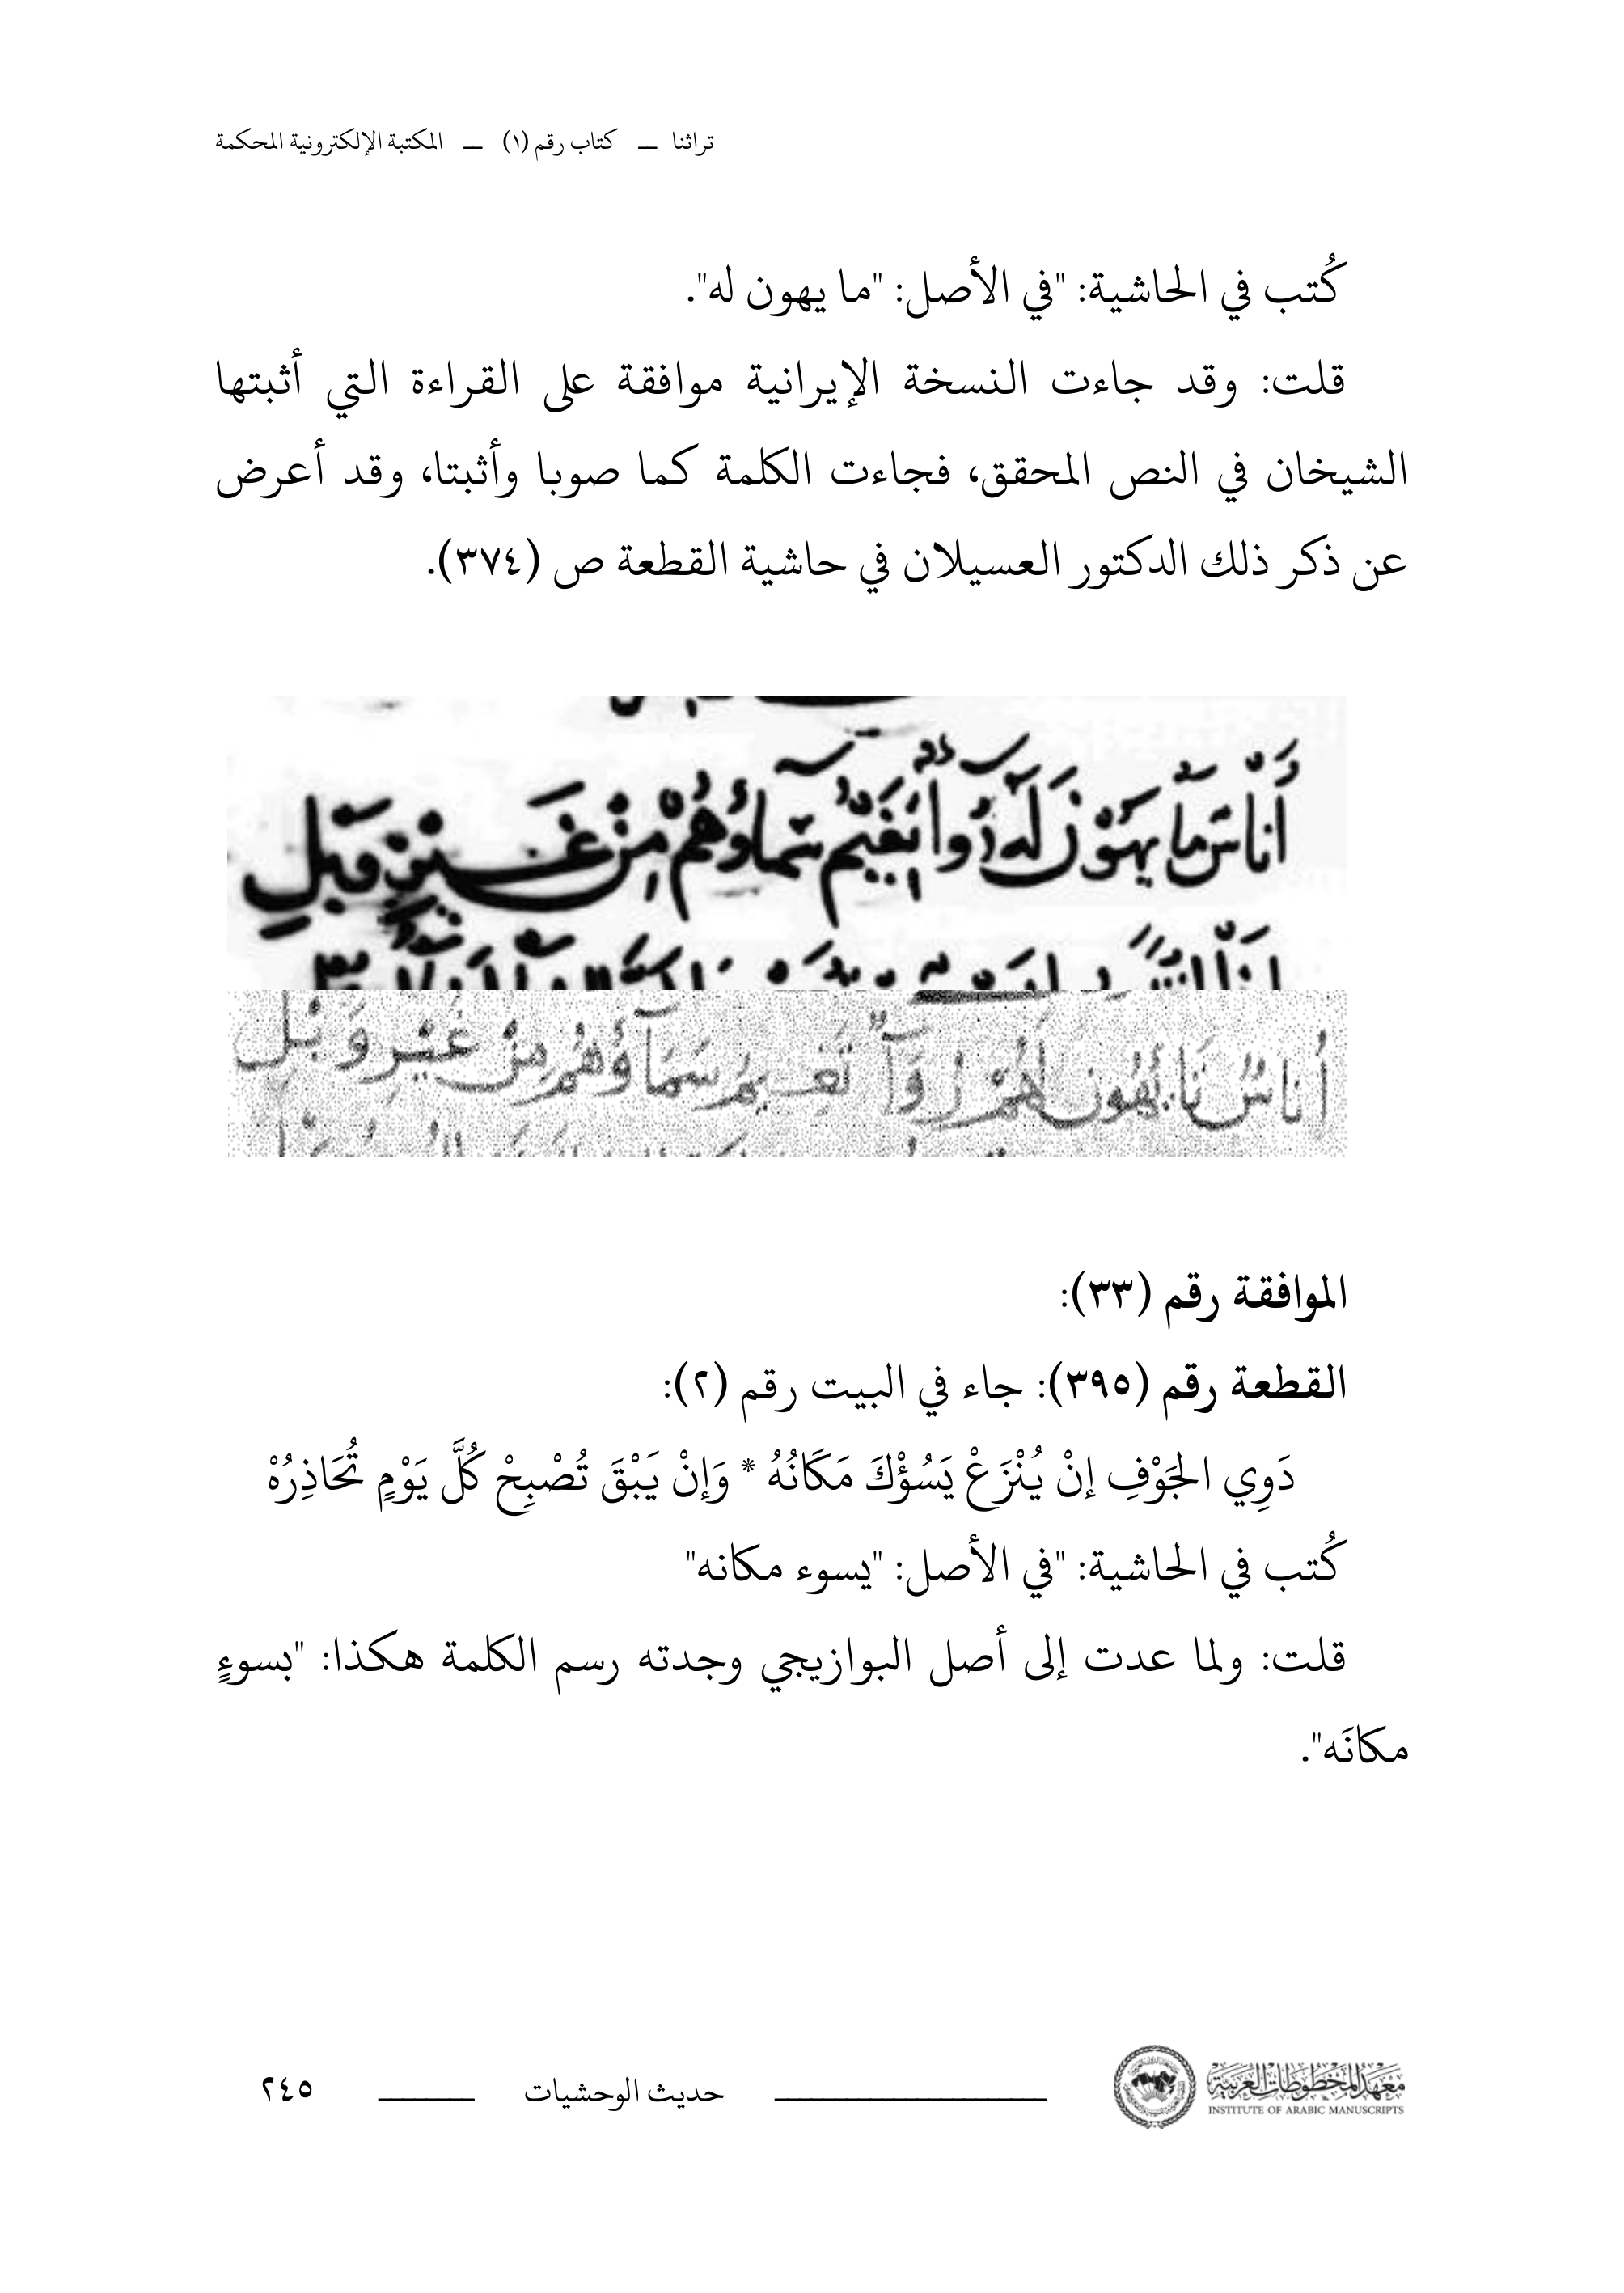 تراثنا — كتاب رقم (١) — المكتبة الإلكترونية المحكمة
كُتب في الحاشية: "في الأصل: "ما يهون له".
قلت: وقد جاءت النسخة الإيرانية موافقة على القراءة التي أثبتها
الشيخان في النص المحقق، فجاءت الكلمة كما صوبا وأثبتا، وقد أعرض
عن ذكر ذلك الدكتور العسيلان في حاشية القطعة ص (٣٧٤).
سماؤهم من غير
أناسٌ سَمَآؤُهُم مِنْ غَيْرِ وَبْل
الموافقة رقم (٣٣):
القطعة رقم (٣٩٥): جاء في البيت رقم (٢):
دَوِي الجَوْفِ إنْ يُنْزَعْ يَسُؤْكَ مَكَانُهُ * وَإنْ يَبْقَ تُصْبِحْ كُلَّ يَوْمٍ تُحَاذِرُهْ
كُتب في الحاشية: "في الأصل: "يسوء مكانه"
قلت: ولما عدت إلى أصل البوازيجي وجدته رسم الكلمة هكذا: "بسوءٍ
مكانَه".
معهد المخطوطات العربية
INSTITUTE OF ARABIC MANUSCRIPTS
حديث الوحشيات
٢٤٥